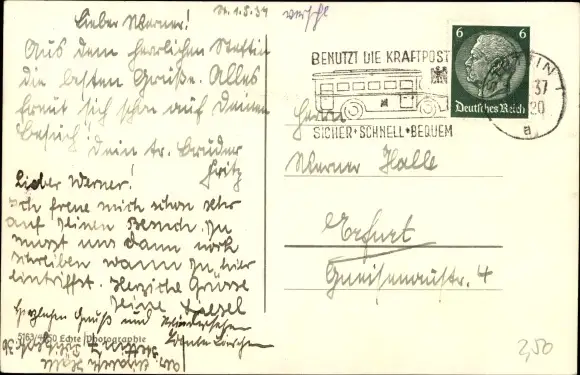 Lieber Werner!
Aus dem herrlichen Stettin
die besten Grüße. Alles
freut sich schon auf Deinen
Besuch. Dein tr. Bruder
Fritz
Lieber Werner!
Ich freue mich schon sehr
auf Deinen Besuch. Du
musst uns dann noch
schreiben wann Du hier
eintriffst. Herzliche Grüsse
Deine
Herzlichen Gruß und Wiedersehen
Tante
Echte Photographie
1.5.37
BENUTZT DIE KRAFTPOST
SICHER+SCHNELL+BEQUEM
STETTIN 1
37
20
a
6 6
Deutsches Reich
Herrn
Werner Halle
Erfurt
Gneisenaustr. 4
2,50